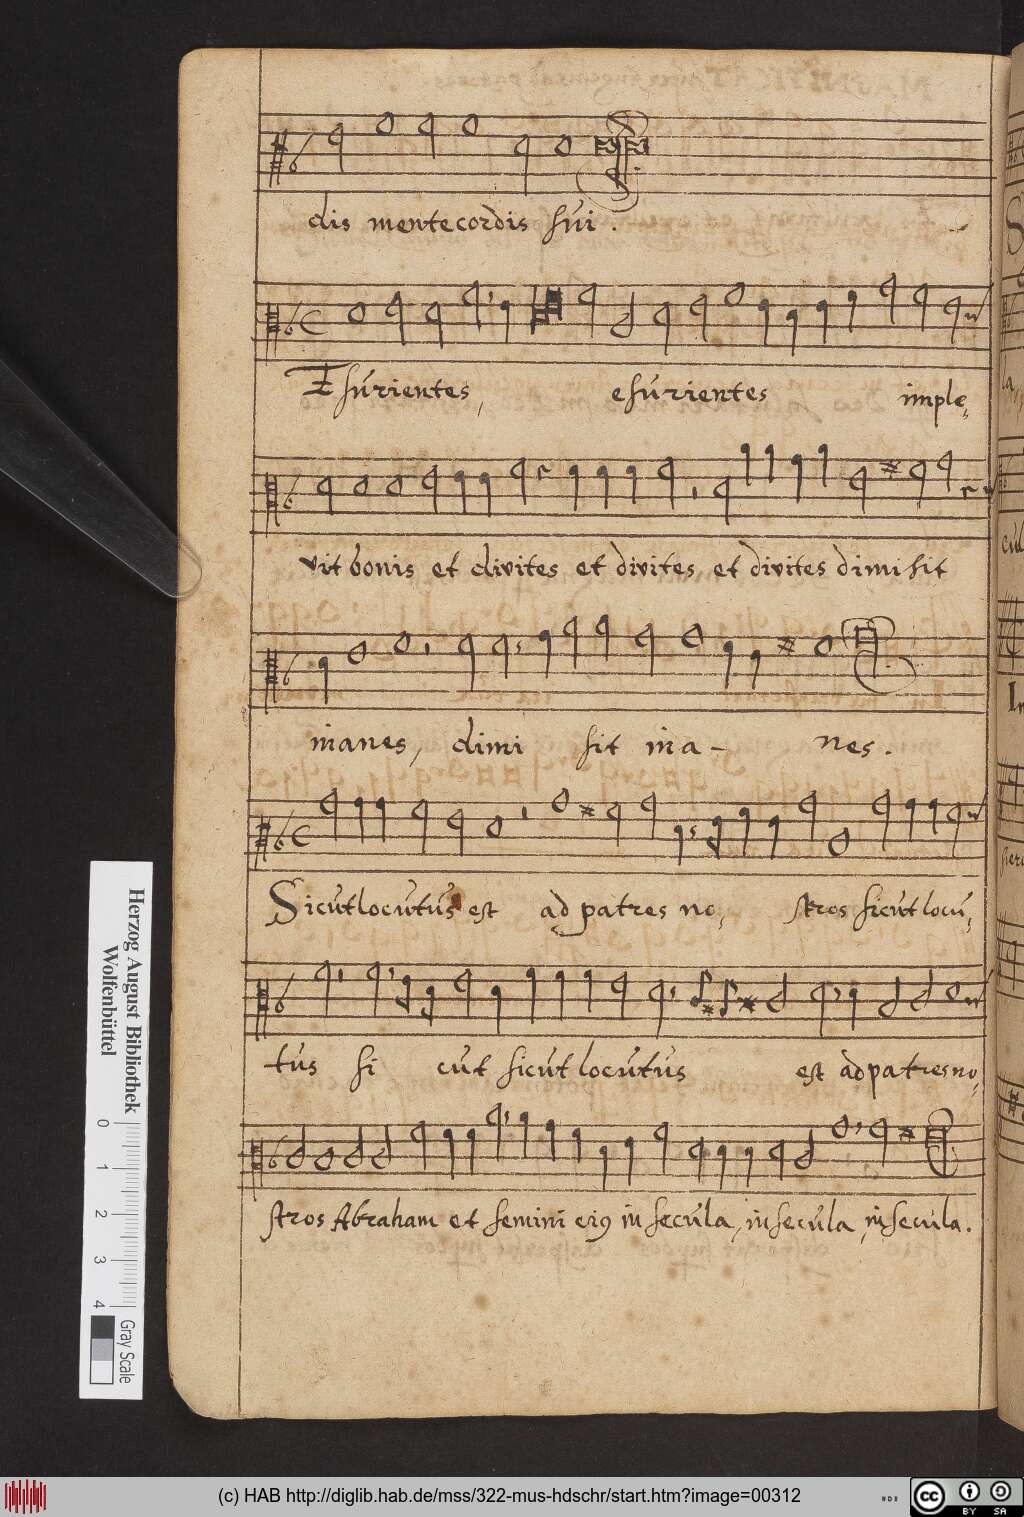 dis mente cordis sui.
Esurientes, esurientes imple,
vit bonis et divites et divites, et divites dimisit
inanes, dimi sit ina - nes.
Sicut locutus est ad patres no, stros sicut locu,
tus si cut sicut locutus est ad patres no,
stros Abraham et semini ei9 in secula, in secula, in secula.
Herzog August Bibliothek
Wolfenbüttel
0 1 2 3 4
Gray Scale
(c) HAB http://diglib.hab.de/mss/322-mus-hdschr/start.htm?image=00312
cc BY SA